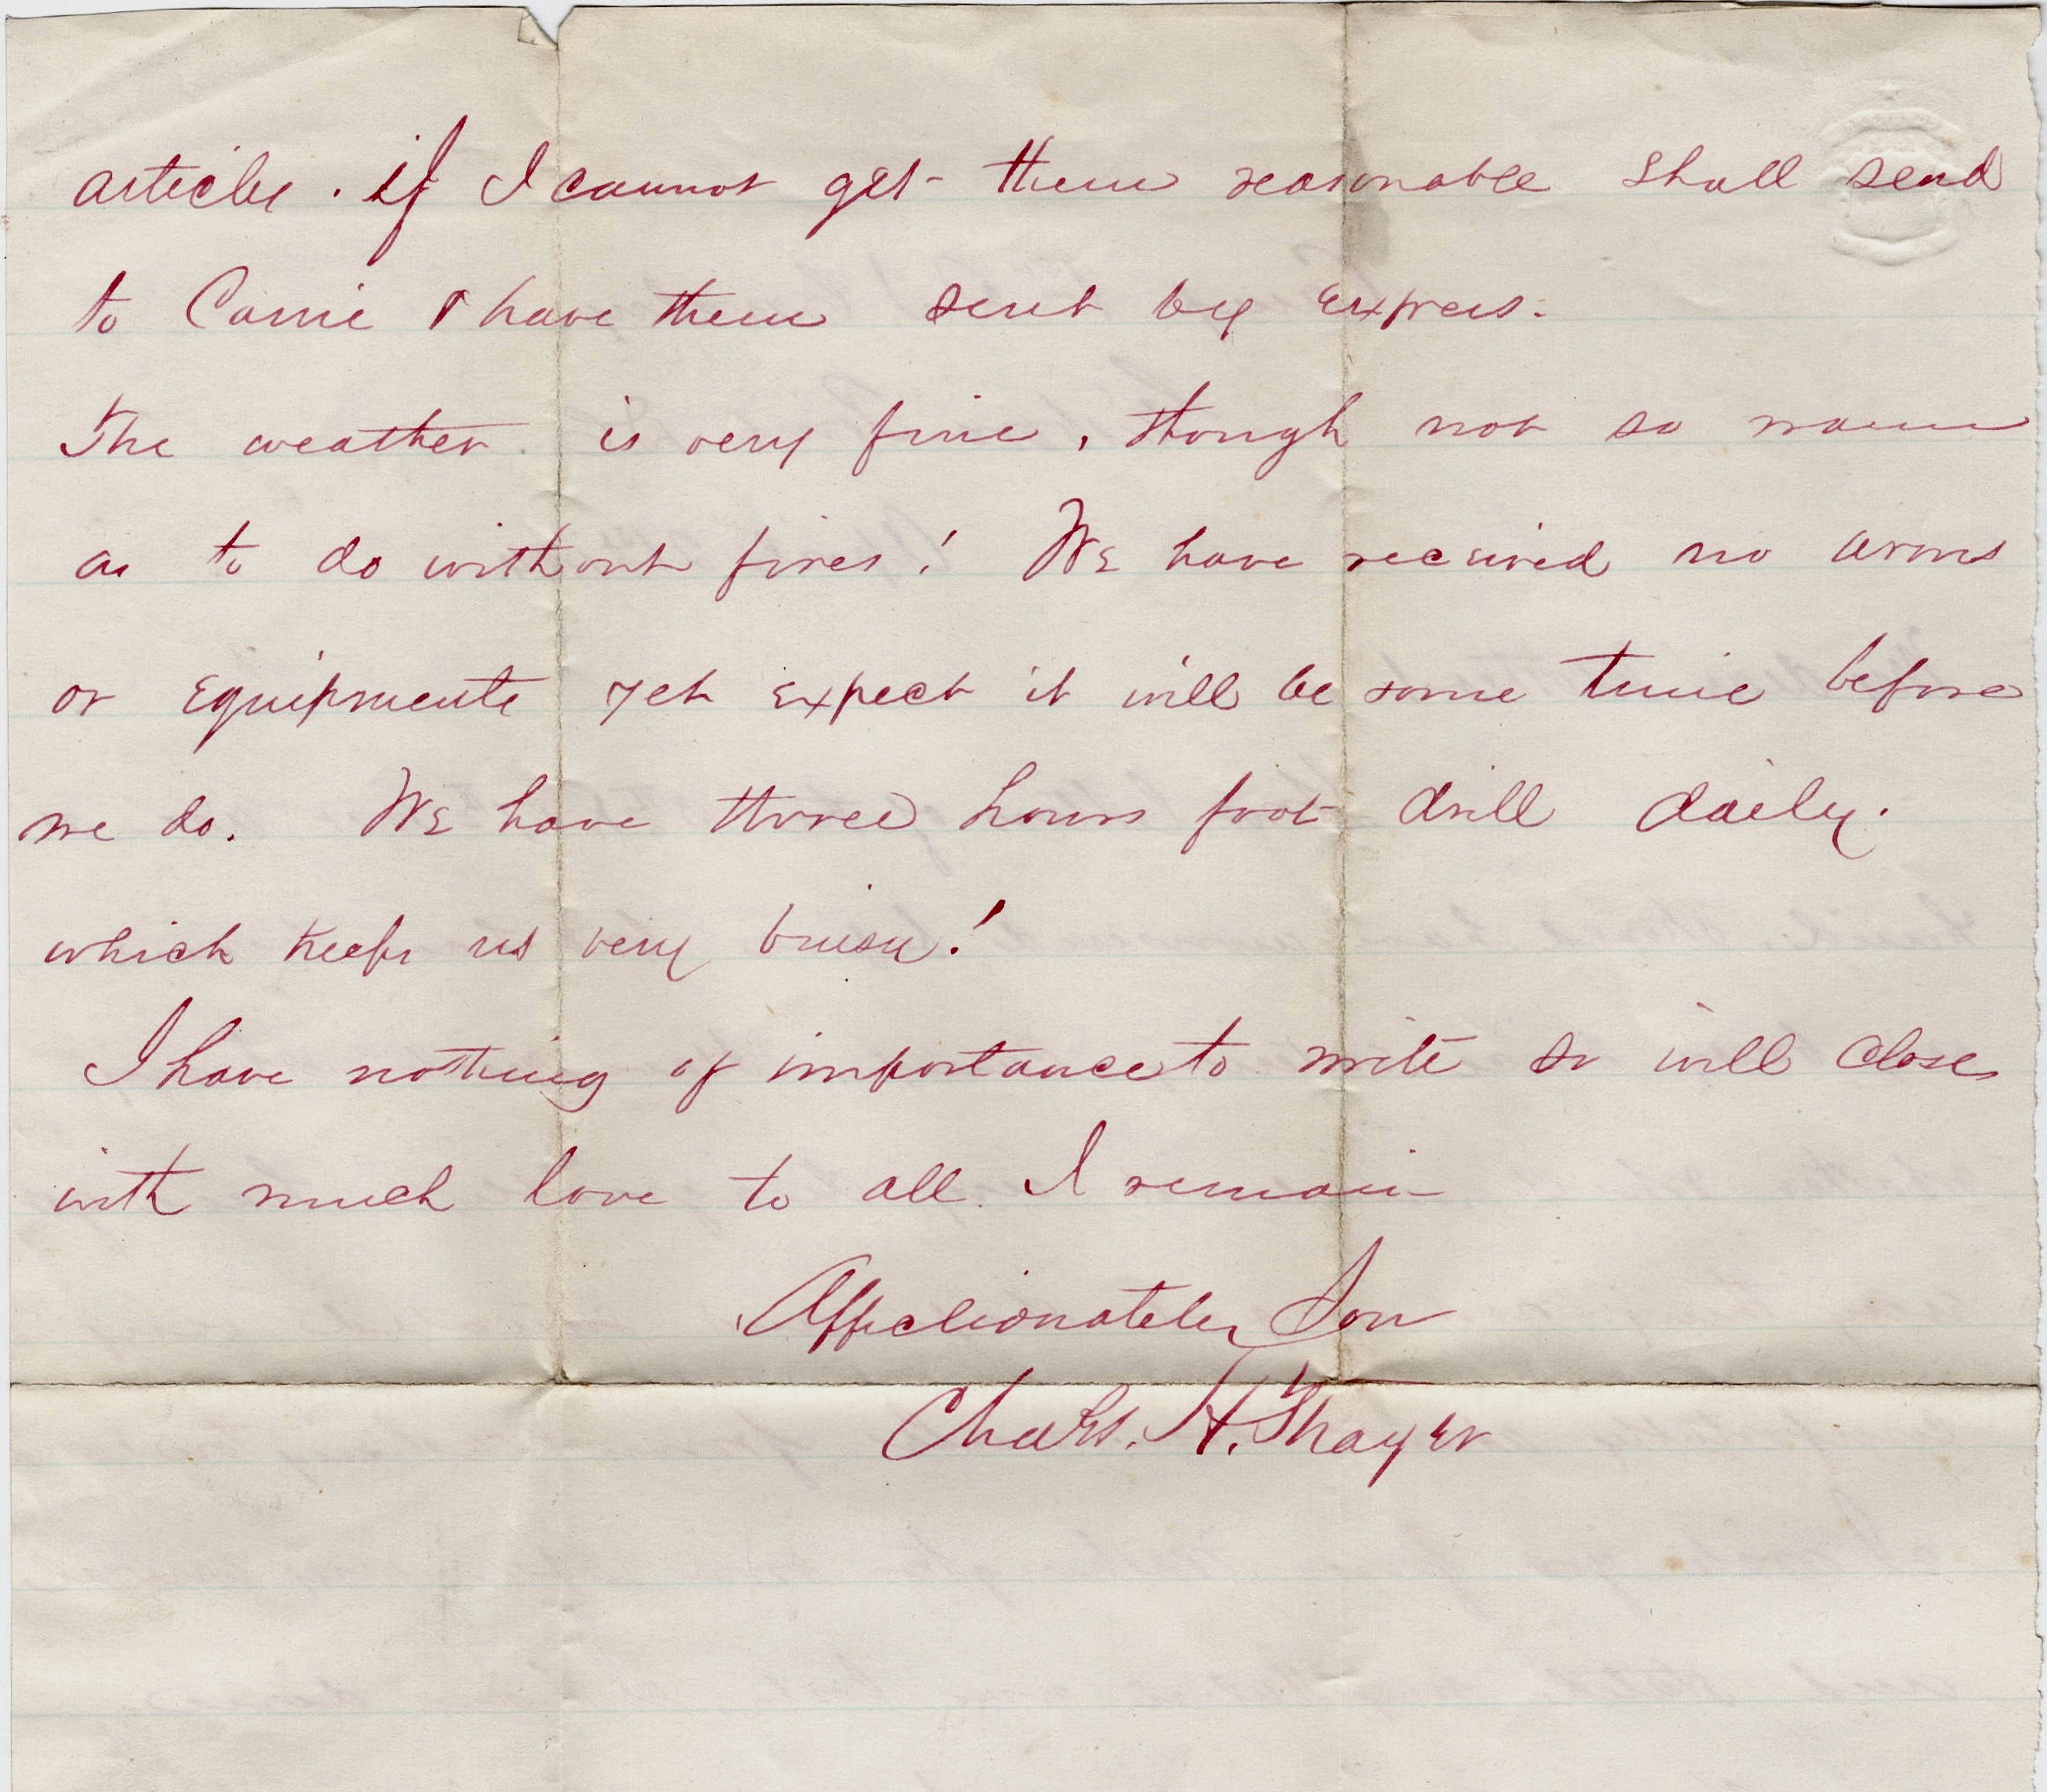 articles. if I cannot get them reasonable shall send
to Carrie & have them sent by Express.
The weather is very fine, though not so warm
as to do without fires! We have received no arms
or Equipments yet Expect it will be some time before
we do. We have three hours foot drill daily.
which keeps us very buisy!
I have nothing of importance to write so will close
with much love to all. I remain
Affectionately Son
Chas. H. Thayer